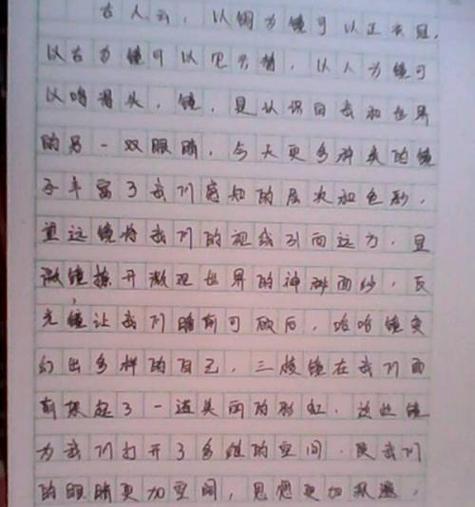 古人云，以铜为镜可以正衣冠，
以古为镜可以见兴替，以人为镜可
以明得失，镜，是认识自我和世界
的另一双眼睛，今天更多种类的镜
子丰富了我们感知的层次和色彩，
望远镜将我们的视线引向远方，显
微镜撩开微观世界的神秘面纱，反
光镜让我们瞻前可顾后，哈哈镜变
幻出多样的自己，三棱镜在我们面
前撑起了一道美丽的彩虹，这些镜
为我们打开了多维的空间，使我们
的眼睛更加空阔，思想更加